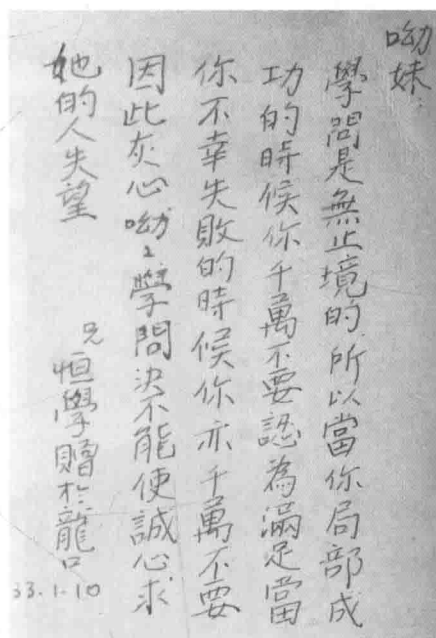 呦妹：
學問是無止境的所以當你局部成
功的時候你千萬不要認為滿足當
你不幸失敗的時候你亦千萬不要
因此灰心呦々學問決不能使誠心求
她的人失望
兄 恒學贈於龍口
33.1.10